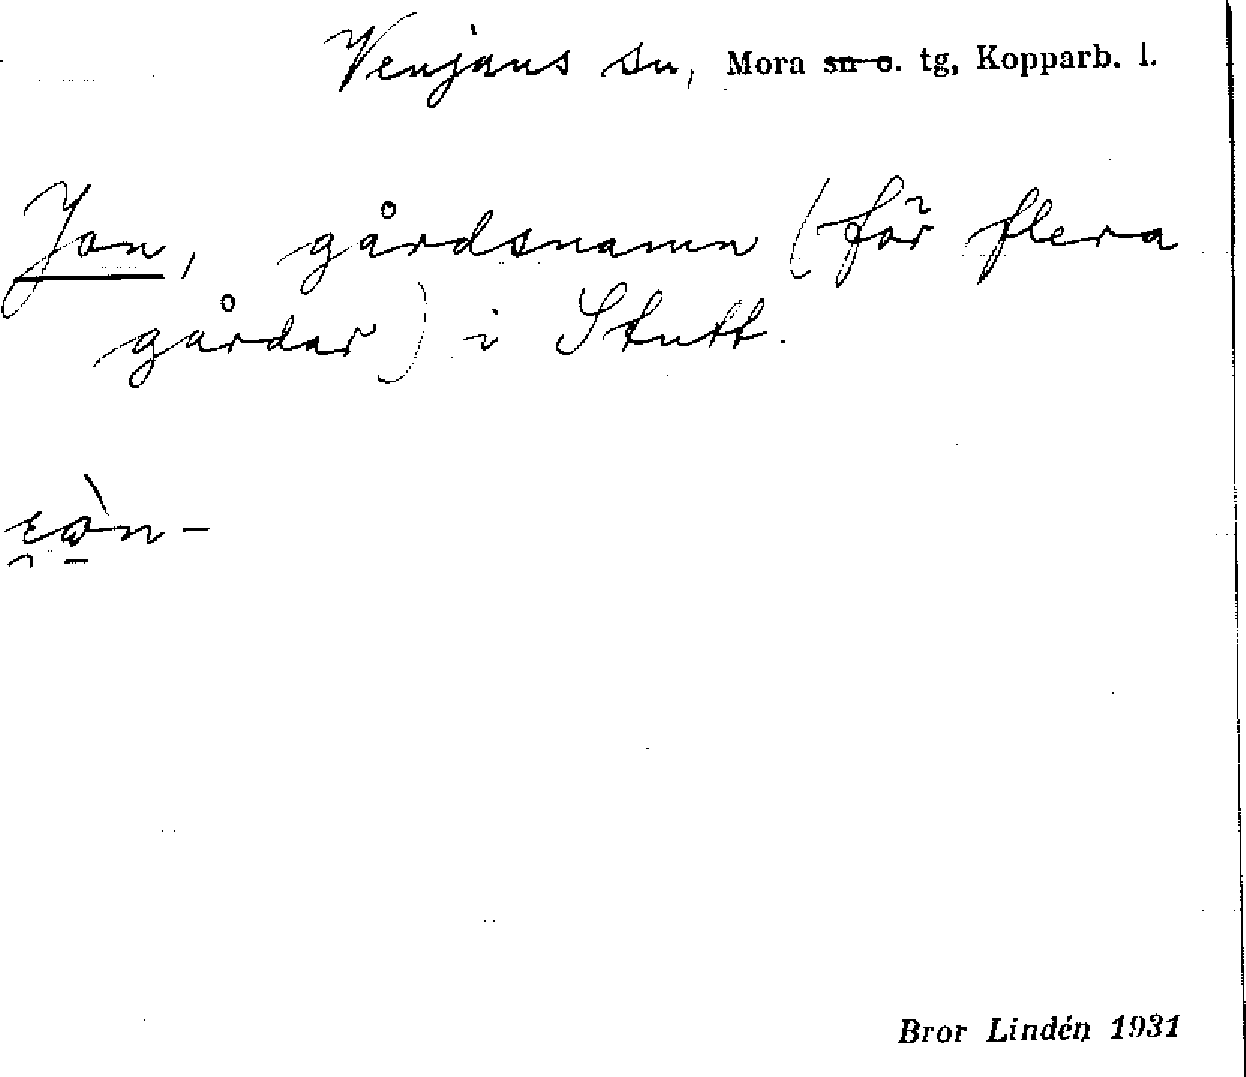 Venjans sn, Mora sn o. tg, Kopparb. l.
Jon, gårdsnamn (för flera
gårdar) i Stutt.
Bror Lindén 1931